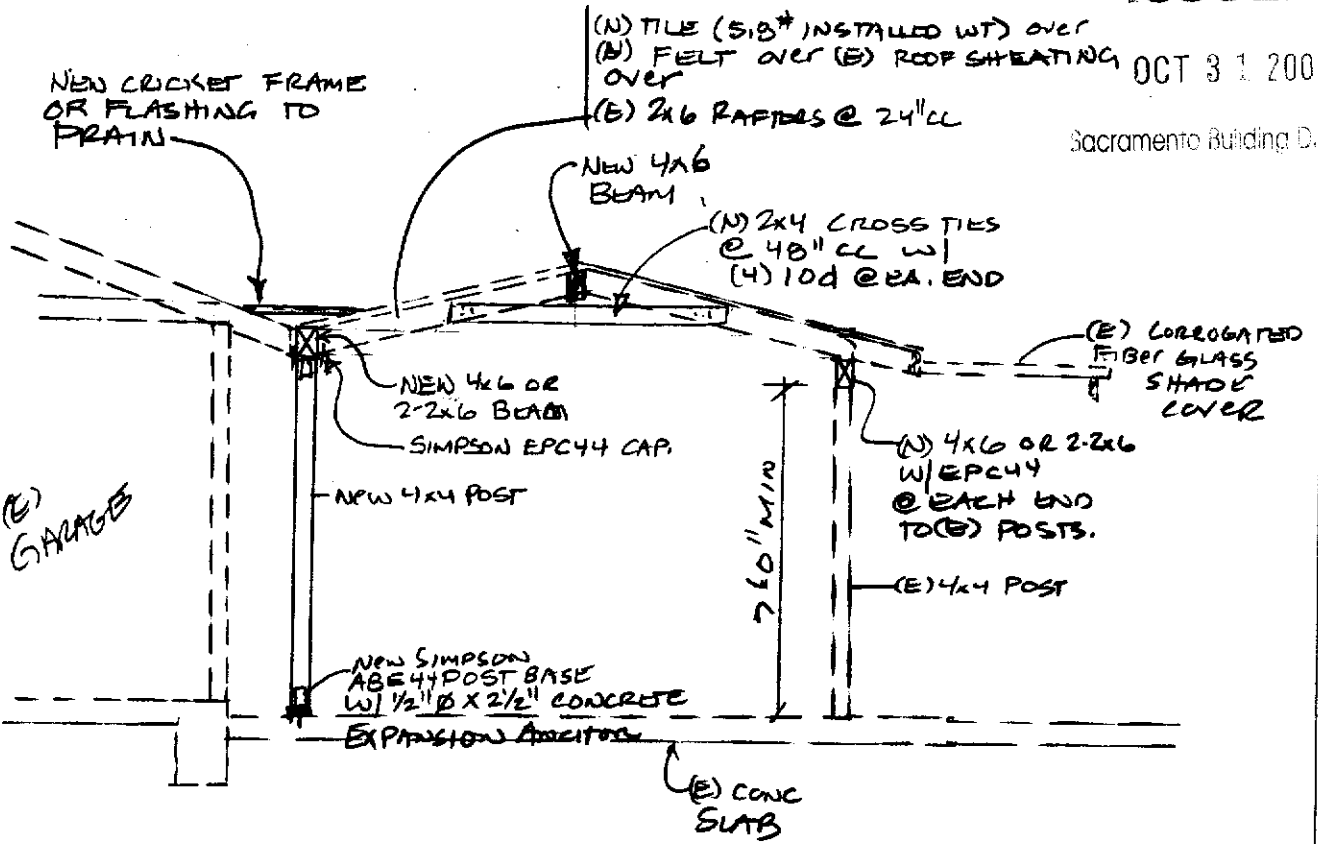 (N) TILE (5.8# INSTALLED WT) over
(N) FELT over (E) ROOF SHEATING
over
(E) 2x6 RAFTERS @ 24"CC
OCT 3 1 200
Sacramento Building D
NEW CRICKET FRAME
OR FLASHING TO
DRAIN
NEW 4x6
BEAM
(N) 2x4 CROSS TIES
@ 48" CC W/
(4) 10d @ EA. END
(E) CORROGATED
FIBer GLASS
SHADE
COVER
NEW 4x6 OR
2-2x6 BEAM
SIMPSON EPC44 CAP.
NEW 4x4 POST
(N) 4x6 OR 2-2x6
W/ EPC44
@ EACH END
TO (E) POSTS.
(E)
GARAGE
MIN
(E) 4x4 POST
NEW SIMPSON
ABE44 POST BASE
W/ 1/2" Ø X 2 1/2" CONCRETE
EXPANSION ANCHOR
(E) CONC
SLAB